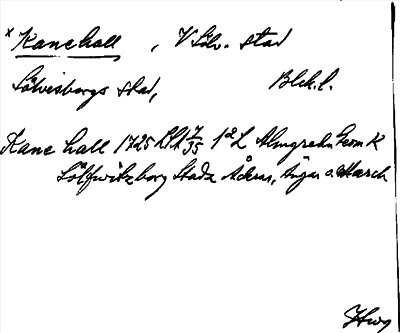 x Kanehall , V Sölv. stad
Sölvesborgs stad, Blek. l.
Kane hall 1725 1 2 L Almgrehn Geom K
Sölfwitzborg Stadz Åkrar, Ängar o. March